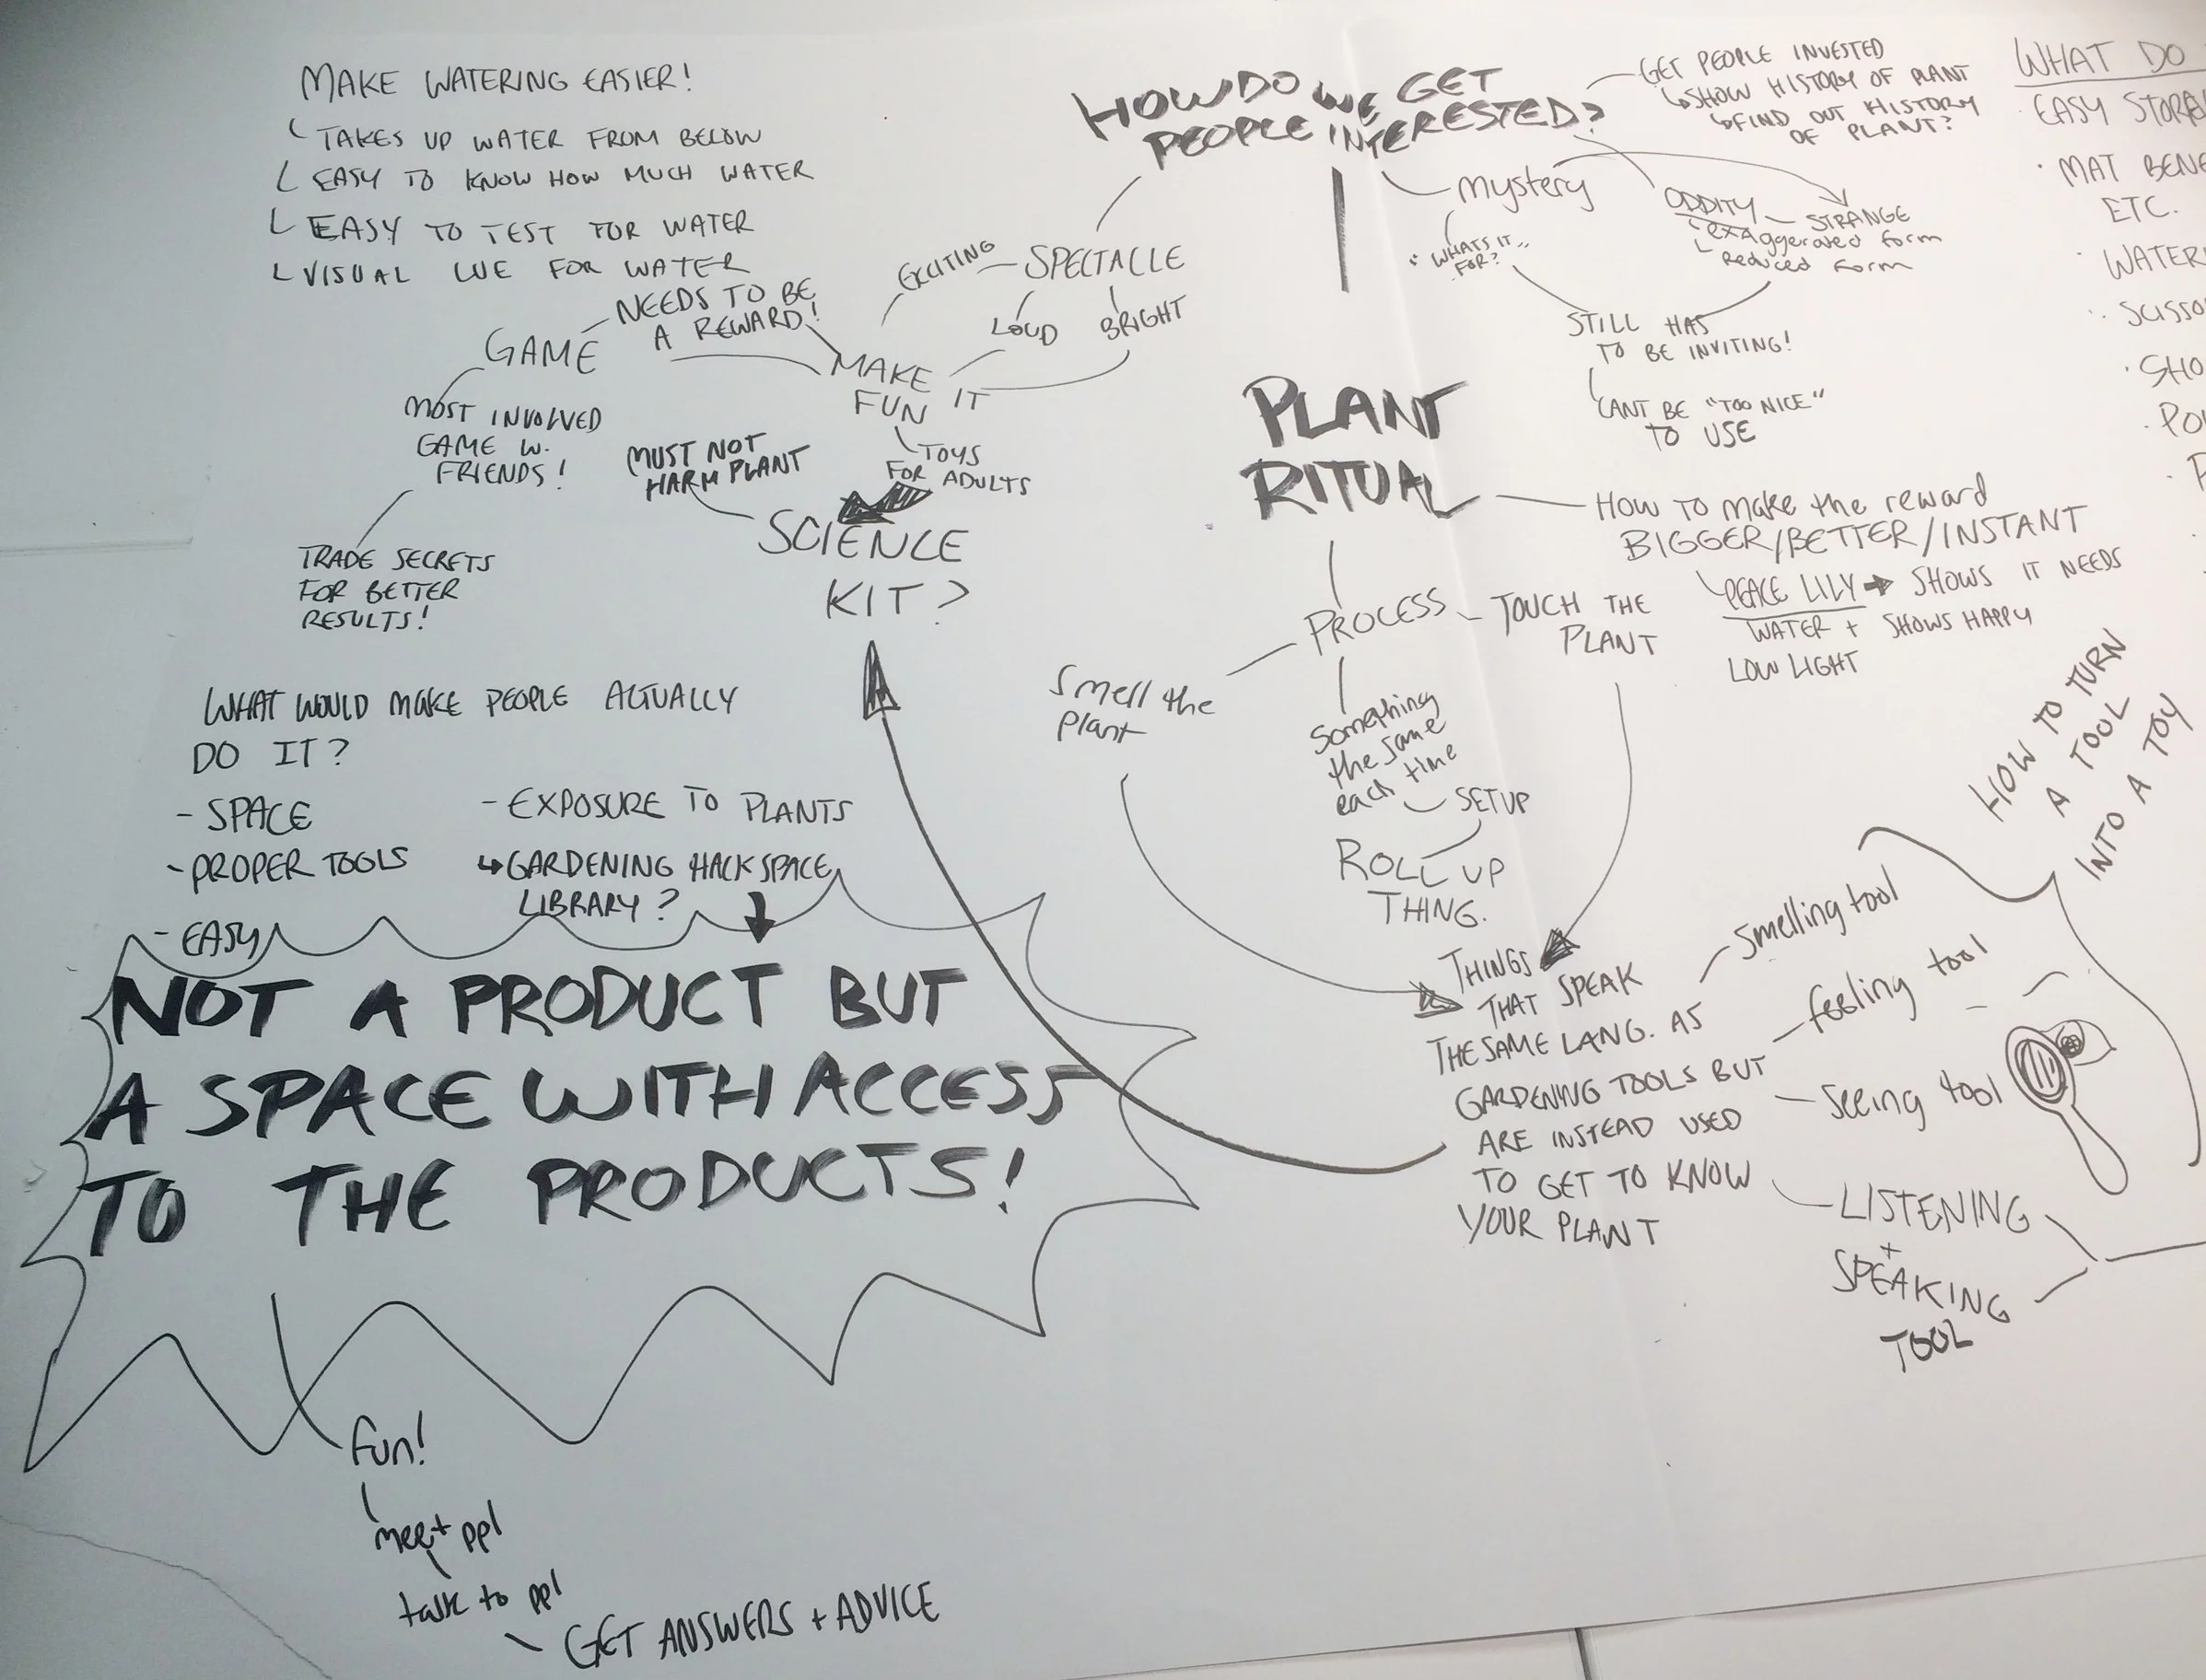 MAKE WATERING EASIER!
TAKES UP WATER FROM BELOW
EASY TO KNOW HOW MUCH WATER
EASY TO TEST FOR WATER
VISUAL CUE FOR WATER
NEEDS TO BE
A REWARD!
GAME
MOST INVOLVED
GAME W.
FRIENDS!
TRADE SECRETS
FOR BETTER
RESULTS!
MAKE
FUN IT
EXCITING
SPECTACLE
LOUD
BRIGHT
TOYS
FOR ADULTS
MUST NOT
HARM PLANT
SCIENCE
KIT?
HOW DO WE GET
PEOPLE INTERESTED?
GET PEOPLE INVESTED
SHOW HISTORY OF PLANT
FIND OUT HISTORY
OF PLANT?
mystery
"WHATS IT
FOR?"
ODDITY
STRANGE
exaggerated form
Reduced form
STILL HAS
TO BE INVITING!
CANT BE "TOO NICE"
TO USE
WHAT DO
EASY
MAT
ETC.
PLANT
RITUAL
HOW TO make the reward
BIGGER/BETTER/INSTANT
PEACE LILY → SHOWS IT NEEDS
WATER + SHOWS HAPPY
LOW LIGHT
PROCESS
TOUCH THE
PLANT
Smell the
plant
Something
the same
each time
SETUP
ROLL UP
THING.
HOW TO TURN
A TOOL
INTO A TOY
WHAT WOULD MAKE PEOPLE ACTUALLY
DO IT?
- SPACE
- PROPER TOOLS
- EASY
- EXPOSURE TO PLANTS
↳ GARDENING HACKSPACE
LIBRARY?
NOT A PRODUCT BUT
A SPACE WITH ACCESS
TO THE PRODUCTS!
fun!
meet ppl
talk to ppl
GET ANSWERS + ADVICE
THINGS
THAT SPEAK
THE SAME LANG. AS
GARDENING TOOLS BUT
ARE INSTEAD USED
TO GET TO KNOW
YOUR PLANT
smelling tool
feeling tool
seeing tool
LISTENING
+
SPEAKING
TOOL